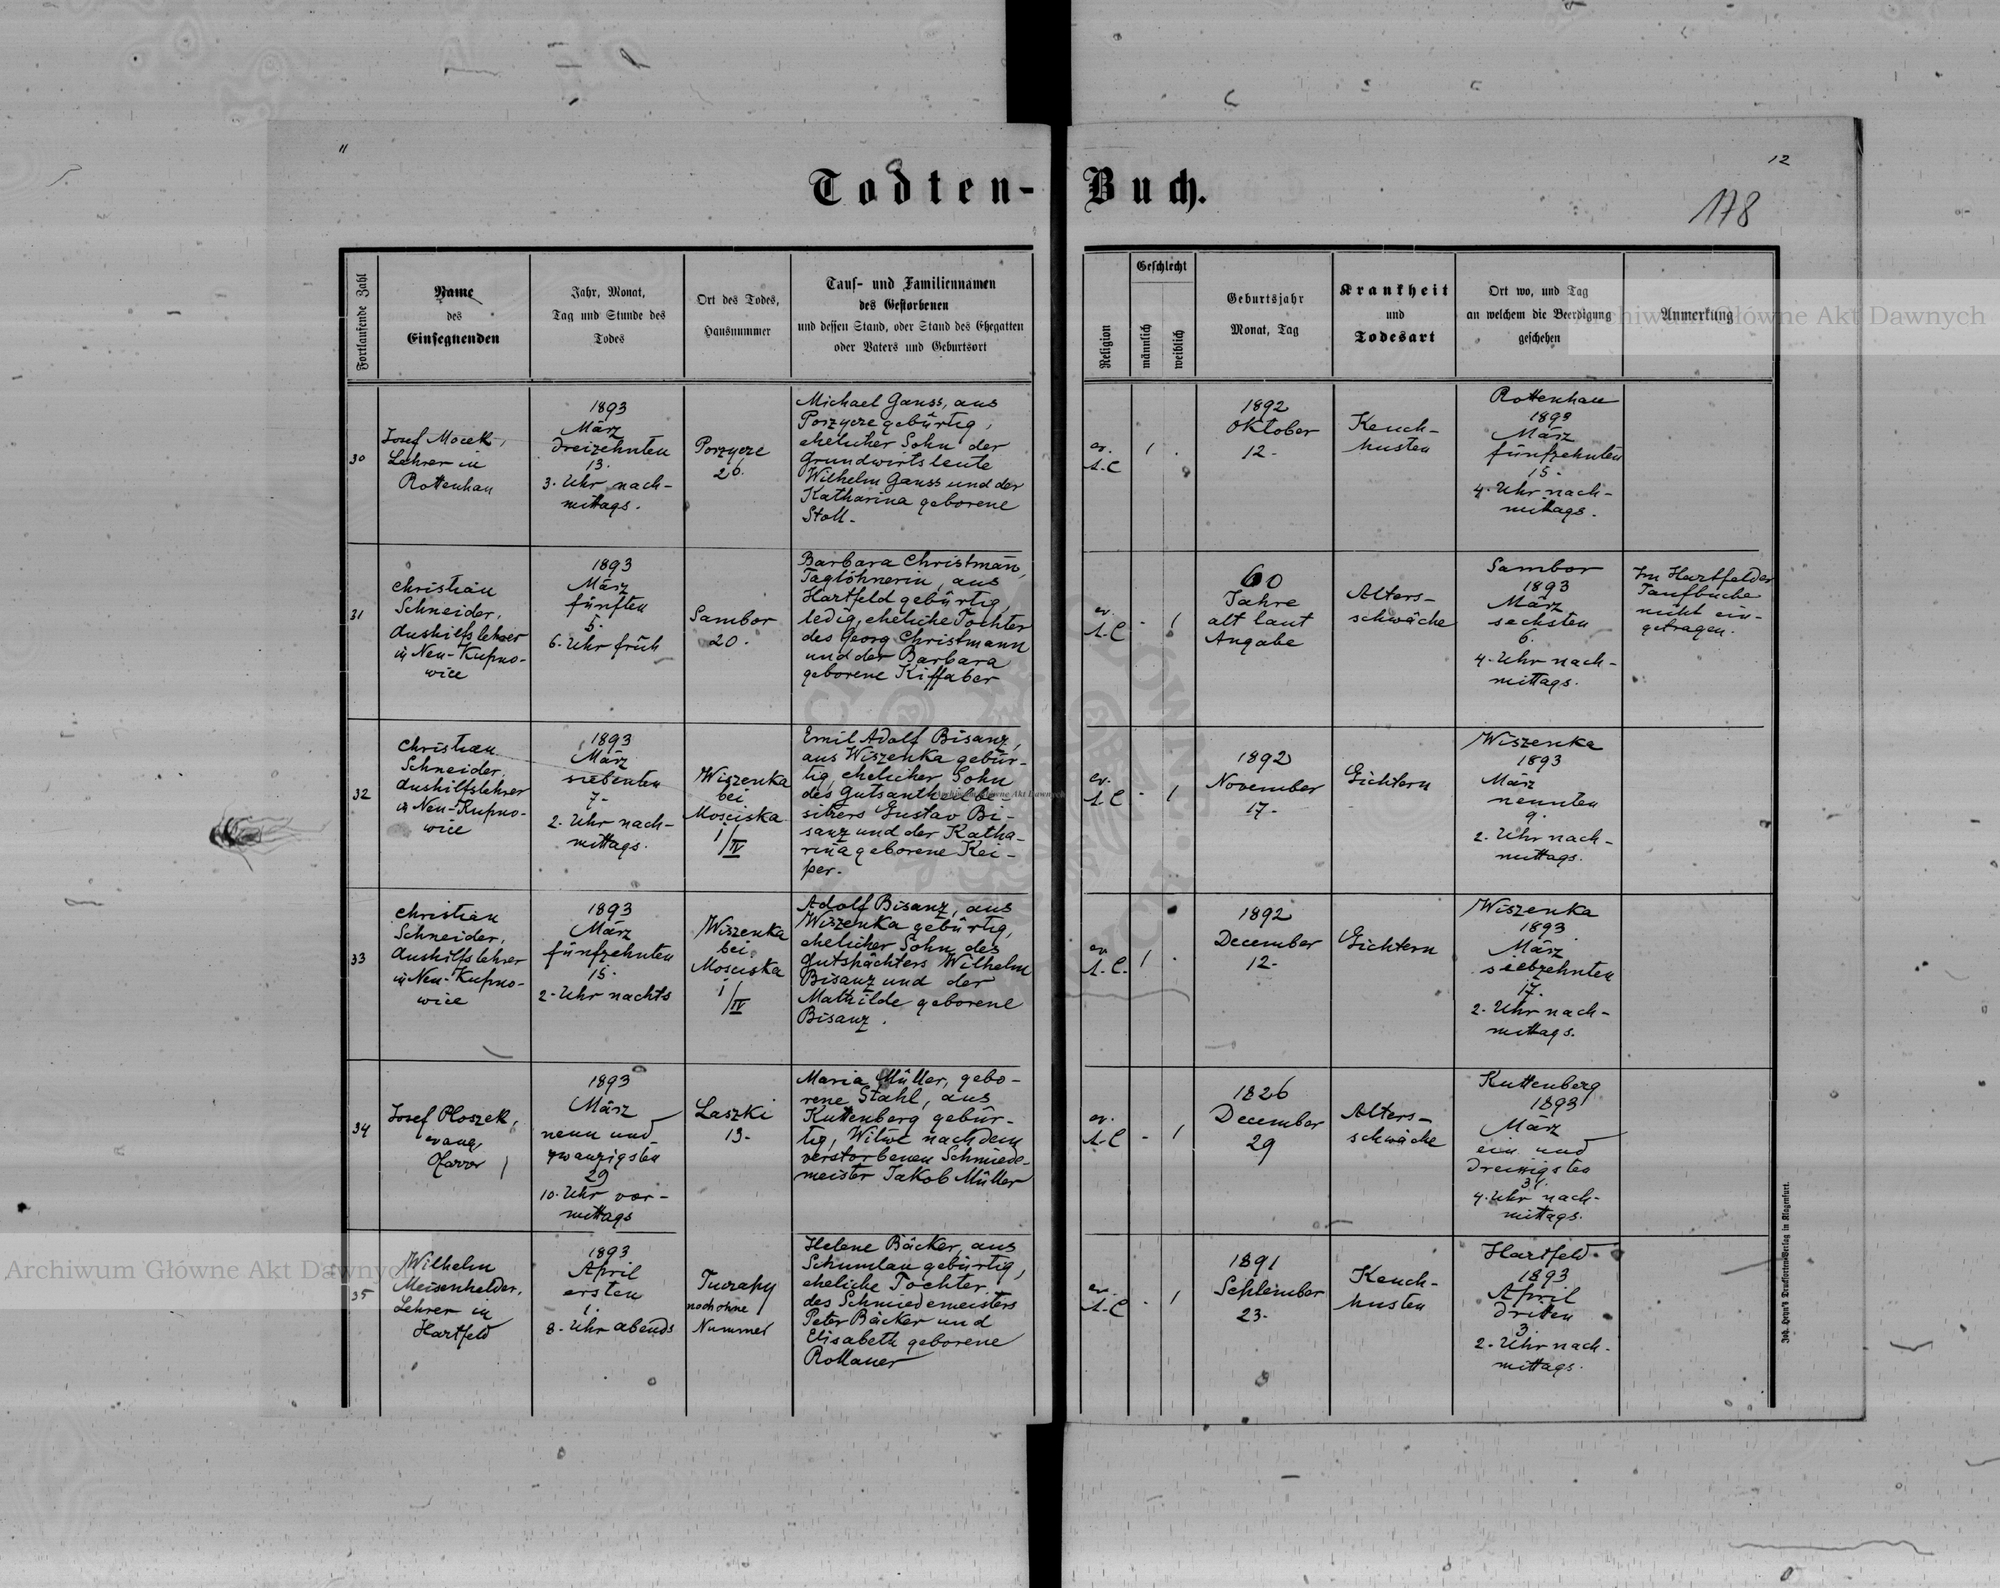 11
12
Todten-Buch.
178
Fortlaufende Zahl
Name
des
Einsegnenden
Jahr, Monat,
Tag und Stunde des
Todes
Ort des Todes,
Hausnummer
Tauf- und Familiennamen
des Gestorbenen
und dessen Stand, oder Stand des Ehegatten
oder Vaters und Geburtsort
Religion
Geschlecht
männlich
weiblich
Geburtsjahr
Monat, Tag
Krankheit
und
Todesart
Ort wo, und Tag
an welchem die Beerdigung
geschehen
Anmerkung
30
Josef Mocek,
Lehrer in
Rottenhan
1893
März
dreizehnten
13.
3. Uhr nach-
mittags.
Porzycze
26.
Michael Gauss, aus
Porzycze gebürtig,
ehelicher Sohn der
Grundwirtsleute
Wilhelm Gauss und der
Katharina geborene
Stoll.
ev.
A.C
1892
Oktober
12.
Keuch-
husten
Rottenhan
1893
März
fünfzehnten
15.
4. Uhr nach-
mittags.
31
Christian
Schneider,
Aushilfslehrer
in Neu-Kupno-
wice
1893
März
fünften
5.
6. Uhr früh
Sambor
20.
Barbara Christman,
Taglöhnerin, aus
Hartfeld gebürtig,
ledig, eheliche Tochter
des Georg Christmann
und der Barbara
geborene Kiffaber
ev.
A.C
60
Jahre
alt laut
Angabe
Alters-
schwäche
Sambor
1893
März
sechsten
6.
4. Uhr nach-
mittags.
Im Hartfelder
Taufbuche
nicht ein-
getragen.
32
Christian
Schneider,
Aushilfslehrer
in Neu-Kupno-
wice
1893
März
siebenten
7.
2. Uhr nach-
mittags.
Wiszenka
bei
Mosciska
1/IV
Emil Adolf Bisanz,
aus Wiszenka gebür-
tig, ehelicher Sohn
des Gutsantheilbe-
sitzers Gustav Bi-
sanz und der Katha-
rina geborene Kei-
per.
ev.
A.C
1892
November
17.
Gichtern
Wiszenka
1893
März
neunten
9.
2. Uhr nach-
mittags.
33
Christian
Schneider,
Aushilfslehrer
in Neu-Kupno-
wice
1893
März
fünfzehnten
15.
2. Uhr nachts
Wiszenka
bei
Mosciska
1/IV
Adolf Bisanz, aus
Wiszenka gebürtig,
ehelicher Sohn des
Gutspächters Wilhelm
Bisanz und der
Mathilde geborene
Bisanz.
ev.
A.C.
1892
December
12.
Gichtern
Wiszenka
1893
März
siebzehnten
17.
2. Uhr nach-
mittags.
34
Josef Ploszek,
evang.
Pfarrer
1893
März
neun und
zwanzigsten
29
10. Uhr vor-
mittags
Laszki
13.
Maria Müller, gebo-
rene Stahl, aus
Kuttenberg gebür-
tig, Witwe nach dem
verstorbenen Schmiede-
meister Jakob Müller
ev.
A.C
1826
December
29
Alters-
schwäche
Kuttenberg
1893
März
ein und
dreissigsten
31.
4. Uhr nach-
mittags.
35
Wilhelm
Meisenhelder,
Lehrer in
Hartfeld
1893
April
ersten
1.
8. Uhr abends
Tuczapy
noch ohne
Nummer
Helene Bäcker, aus
Schumlau gebürtig,
eheliche Tochter
des Schmiedemeisters
Peter Bäcker und
Elisabeth geborene
Rollauer
ev.
A.C
1891
September
23.
Keuch-
husten
Hartfeld
1893
April
dritten
3.
2. Uhr nach-
mittags.
Joh. Heyn's Drucksorten-Verlag in Klagenfurt.
Archiwum Główne Akt Dawnych
Archiwum Główne Akt Dawnych
Archiwum Główne Akt Dawnych